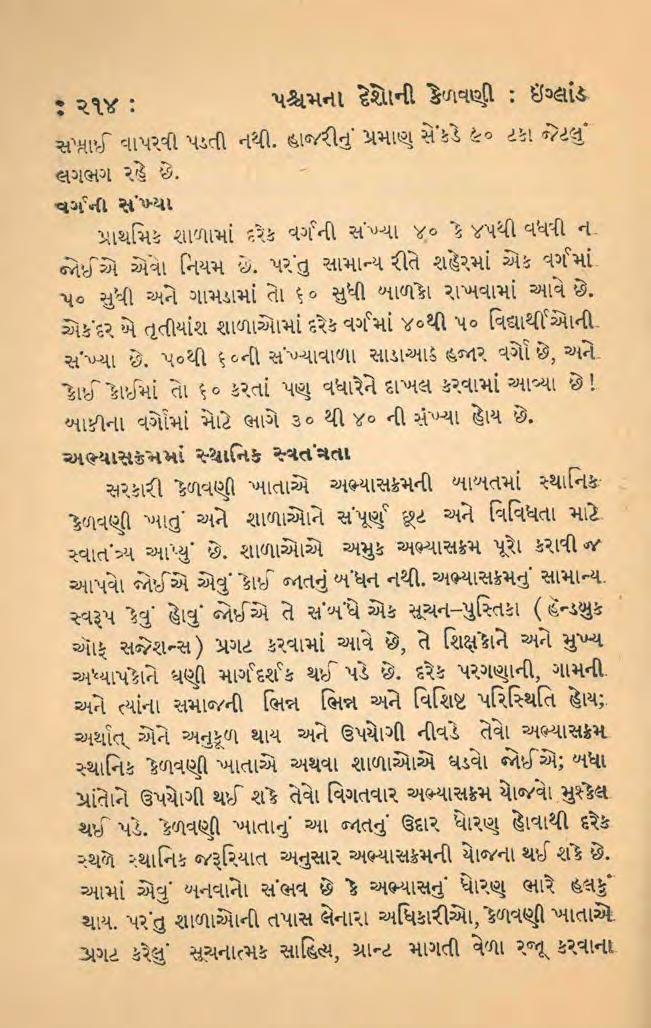 : ૨૧૪ :
પશ્ચમના દેશોની કેળવણી : ઇંગ્લાંડ
સપ્લાઈ વાપરવી પડતી નથી. હાજરીનું પ્રમાણ સેંકડે ૯૦ ટકા જેટલું
લગભગ રહે છે.
વર્ગની સંખ્યા
પ્રાથમિક શાળામાં દરેક વર્ગની સંખ્યા ૪૦ કે ૪૫થી વધવી ન
જોઈએ એવો નિયમ છે. પરંતુ સામાન્ય રીતે શહેરમાં એક વર્ગમાં
૫૦ સુધી અને ગામડામાં તો ૬૦ સુધી બાળકો રાખવામાં આવે છે.
એકંદર બે તૃતીયાંશ શાળાઓમાં દરેક વર્ગમાં ૪૦થી ૫૦ વિદ્યાર્થીઓની
સંખ્યા છે. ૫૦થી ૬૦ની સંખ્યાવાળા સાડાઆઠ હજાર વર્ગો છે, અને
કોઈ કોઈમાં તો ૬૦ કરતાં પણ વધારેને દાખલ કરવામાં આવ્યા છે!
બાકીના વર્ગોમાં મોટે ભાગે ૩૦ થી ૪૦ ની સંખ્યા હોય છે.
અભ્યાસક્રમમાં સ્થાનિક સ્વતંત્રતા
સરકારી કેળવણી ખાતાએ અભ્યાસક્રમની બાબતમાં સ્થાનિક
કેળવણી ખાતું અને શાળાઓને સંપૂર્ણ છૂટ અને વિવિધતા માટે
સ્વાતંત્ર્ય આપ્યું છે. શાળાઓએ અમુક અભ્યાસક્રમ પૂરો કરાવી જ
આપવો જોઈએ એવું કોઈ જાતનું બંધન નથી. અભ્યાસક્રમનું સામાન્ય
સ્વરૂપ કેવું હોવું જોઈએ તે સંબંધે એક સૂચન–પુસ્તિકા ( હૅન્ડબુક
ઑફ સજેશન્સ) પ્રગટ કરવામાં આવે છે, તે શિક્ષકોને અને મુખ્ય
અધ્યાપકોને ઘણી માર્ગદર્શક થઈ પડે છે. દરેક પરગણાની, ગામની
અને ત્યાંના સમાજની ભિન્ન ભિન્ન અને વિશિષ્ટ પરિસ્થિતિ હોય;
અર્થાત્ એને અનુકૂળ થાય અને ઉપયોગી નીવડે તેવો અભ્યાસક્રમ
સ્થાનિક કેળવણી ખાતાએ અથવા શાળાઓએ ઘડવો જોઈએ; બધા
પ્રાંતોને ઉપયોગી થઈ શકે તેવો વિગતવાર અભ્યાસક્રમ યોજવો મુશ્કેલ
થઈ પડે. કેળવણી ખાતાનું આ જાતનું ઉદાર ધોરણ હોવાથી દરેક
સ્થળે સ્થાનિક જરૂરિયાત અનુસાર અભ્યાસક્રમની યોજના થઈ શકે છે.
આમાં એવું બનવાનો સંભવ છે કે અભ્યાસનું ધોરણ ભારે હલકું
થાય. પરંતુ શાળાઓની તપાસ લેનારા અધિકારીઓ, કેળવણી ખાતાએ
પ્રગટ કરેલું સૂચનાત્મક સાહિત્ય, ગ્રાન્ટ માગતી વેળા રજૂ કરવાના